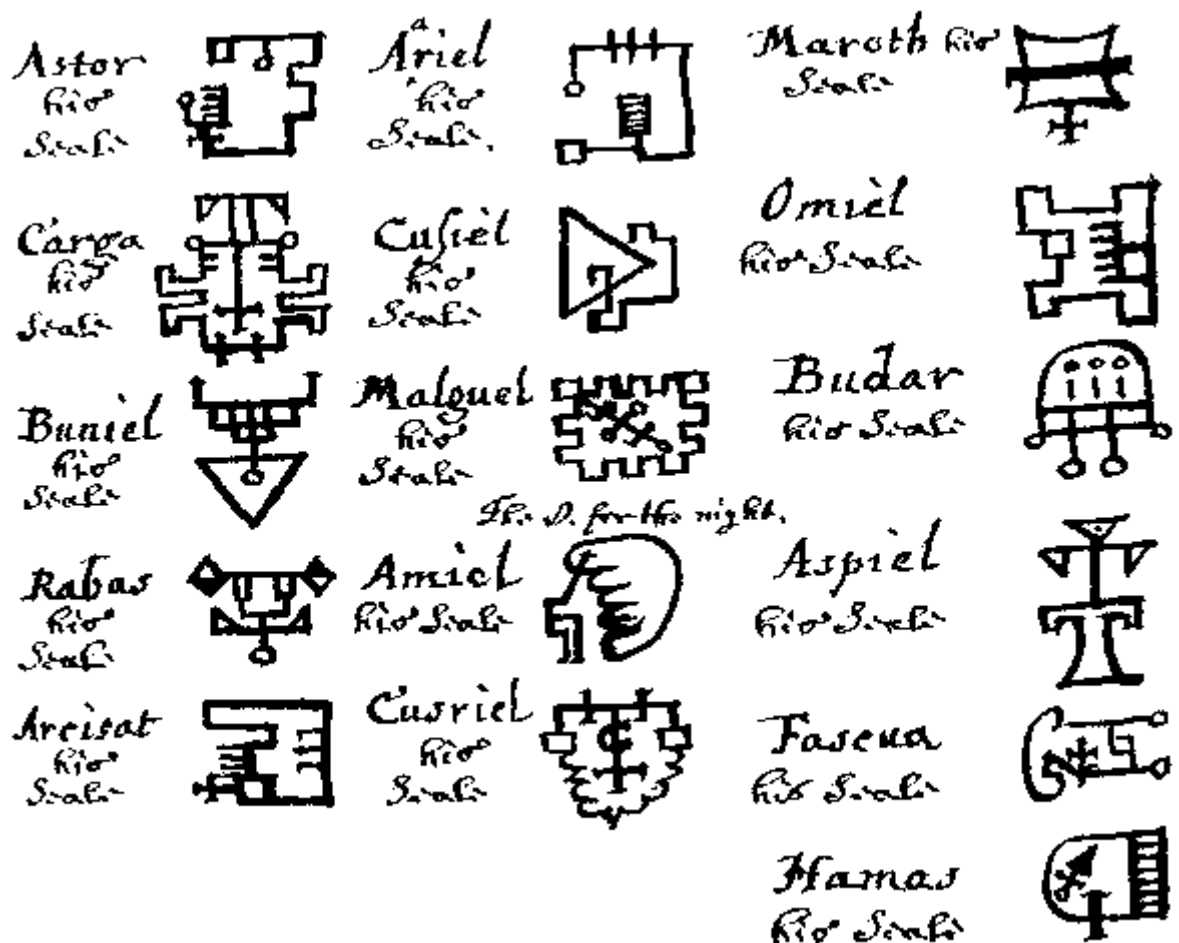 Astor
his
Seale
Carga
his
Seale
Buniel
his
Seale
Rabas
his
Seale
Arcisat
his
Seale
a
Ariel
his
Seale.
Cuſiel
his
Seale
Malguel
his
Seale
The D. for the night.
Amiel
his Seale
Cusriel
his
Seale
Maroth his
Seale
Omiel
his Seale
Budar
his Seale
Aspiel
his Seale
Faseua
his Seale
Hamas
his Seale